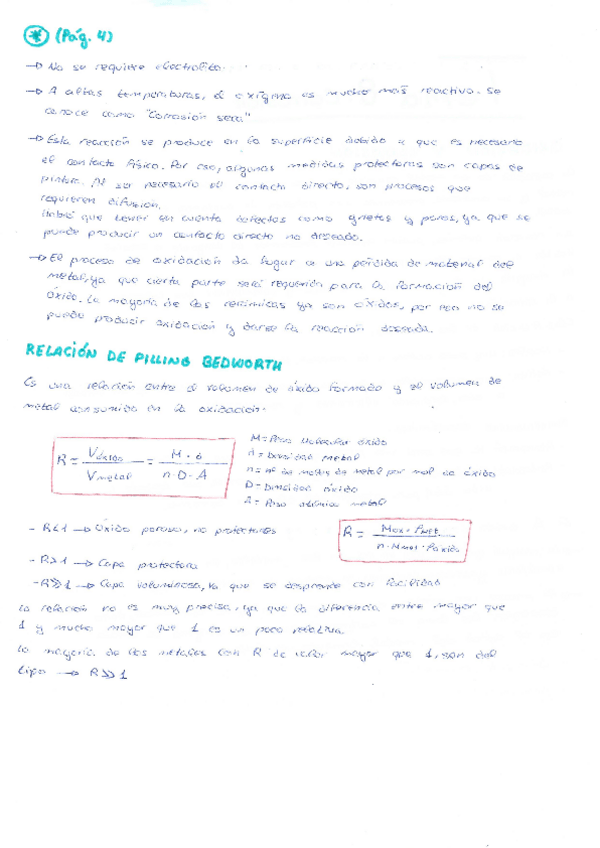 * (Pág. 4)
→ No se requiere electrolito.
→ A altas temperaturas, el oxígeno es mucho más reactivo. Se
conoce como "Corrosión seca"
→ Esta reacción se produce en la superficie debido a que es necesario
el contacto físico. Por eso, algunas medidas protectoras son capas de
pintura. Al ser necesario el contacto directo, son procesos que
requieren difusión.
Habrá que tener en cuenta defectos como grietas y poros, ya que se
puede producir un contacto directo no deseado.
→ El proceso de oxidación da lugar a una pérdida de material del
metal, ya que cierta parte será requerida para la formación del
óxido. La mayoría de las cerámicas ya son óxidos, por eso no se
puede producir oxidación y darse la reacción deseada.
RELACIÓN DE PILLING BEDWORTH
Es una relación entre el volumen de óxido formado y el volumen de
metal consumido en la oxidación.
R = Vóxido / Vmetal = M · d / n · D · A
M = Peso molecular óxido
d = Densidad metal
n = nº de moles de metal por mol de óxido
D = Densidad óxido
A = Peso atómico metal
- R<1 → Óxido poroso, no protectores
R = Mox · ρmet / n · Mmet · ρóxido
- R>1 → Capa protectora
- R≫1 → Capa voluminosa, la que se desprende con facilidad
La relación no es muy precisa, ya que la diferencia entre mayor que
1 y mucho mayor que 1 es un poco relativa.
La mayoría de los metales con R de valor mayor que 1, son del
tipo → R≫1